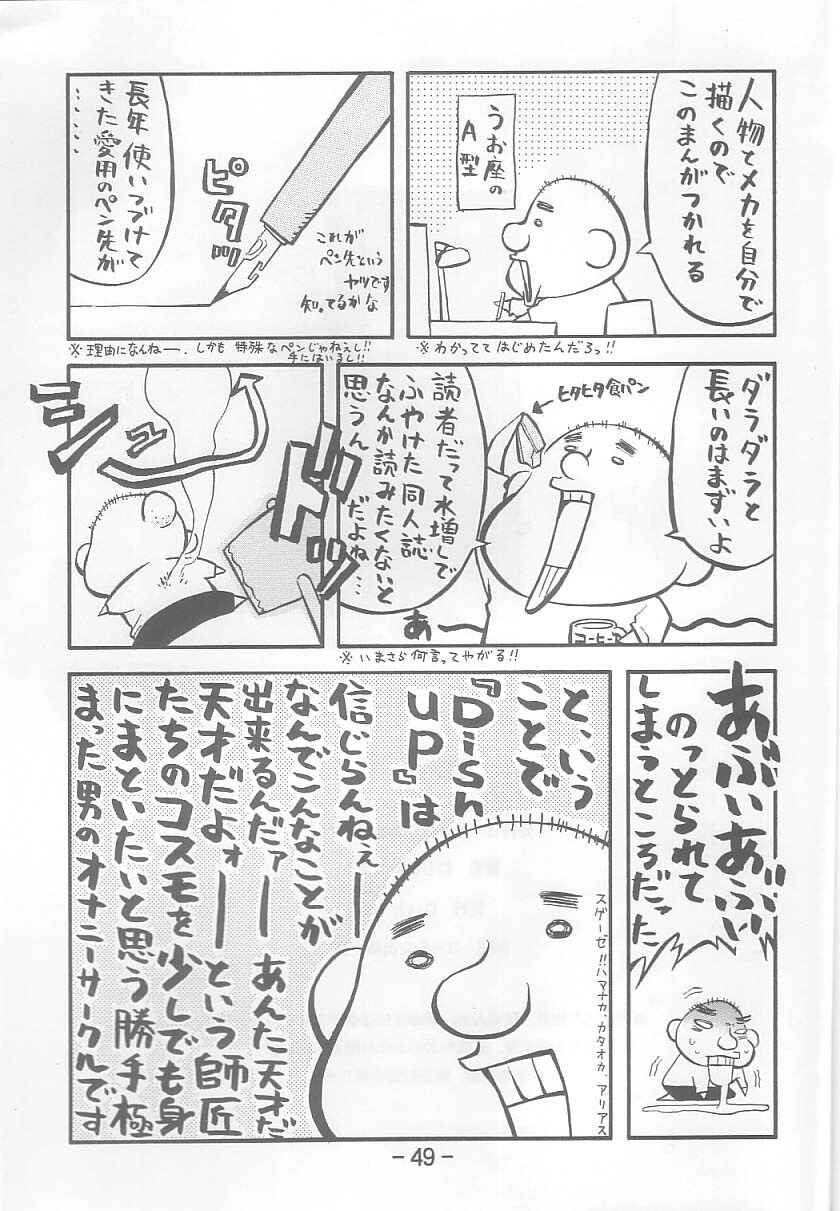 人物とメカを自分で
描くので
このまんがつかれる
うお座の
A型
※わかっててはじめたんだろっ!!
長年使いつづけて
きた愛用のペン先が
……
ピタッ
これが
ペン先という
ヤツです
知ってるかな
※理由になんねー.しかも特殊なペンじゃねぇし!!
手にはいるし!!
ダラダラと
長いのはまずいよ
ヒタヒタ食パン
読者だって水増しで
ふやけた同人誌
なんか読みたくないと
思うんだよね…
あー
コーヒー
※いまさら何言ってやがる!!
ドズッ
あぶいあぶい
のっとられて
しまうところだった
と、いう
ことで
『Dish
UP』は
信じらんねぇー
なんでこんなことが
出来るんだァー
あんた天才だ
天才だよォー
という師匠
たちのコスモを少しでも身
にまといたいと思う勝手極
まった男のオナニーサークルです
スゲーゼ!!ハマナカ.カタオカ.アリアス
-49-